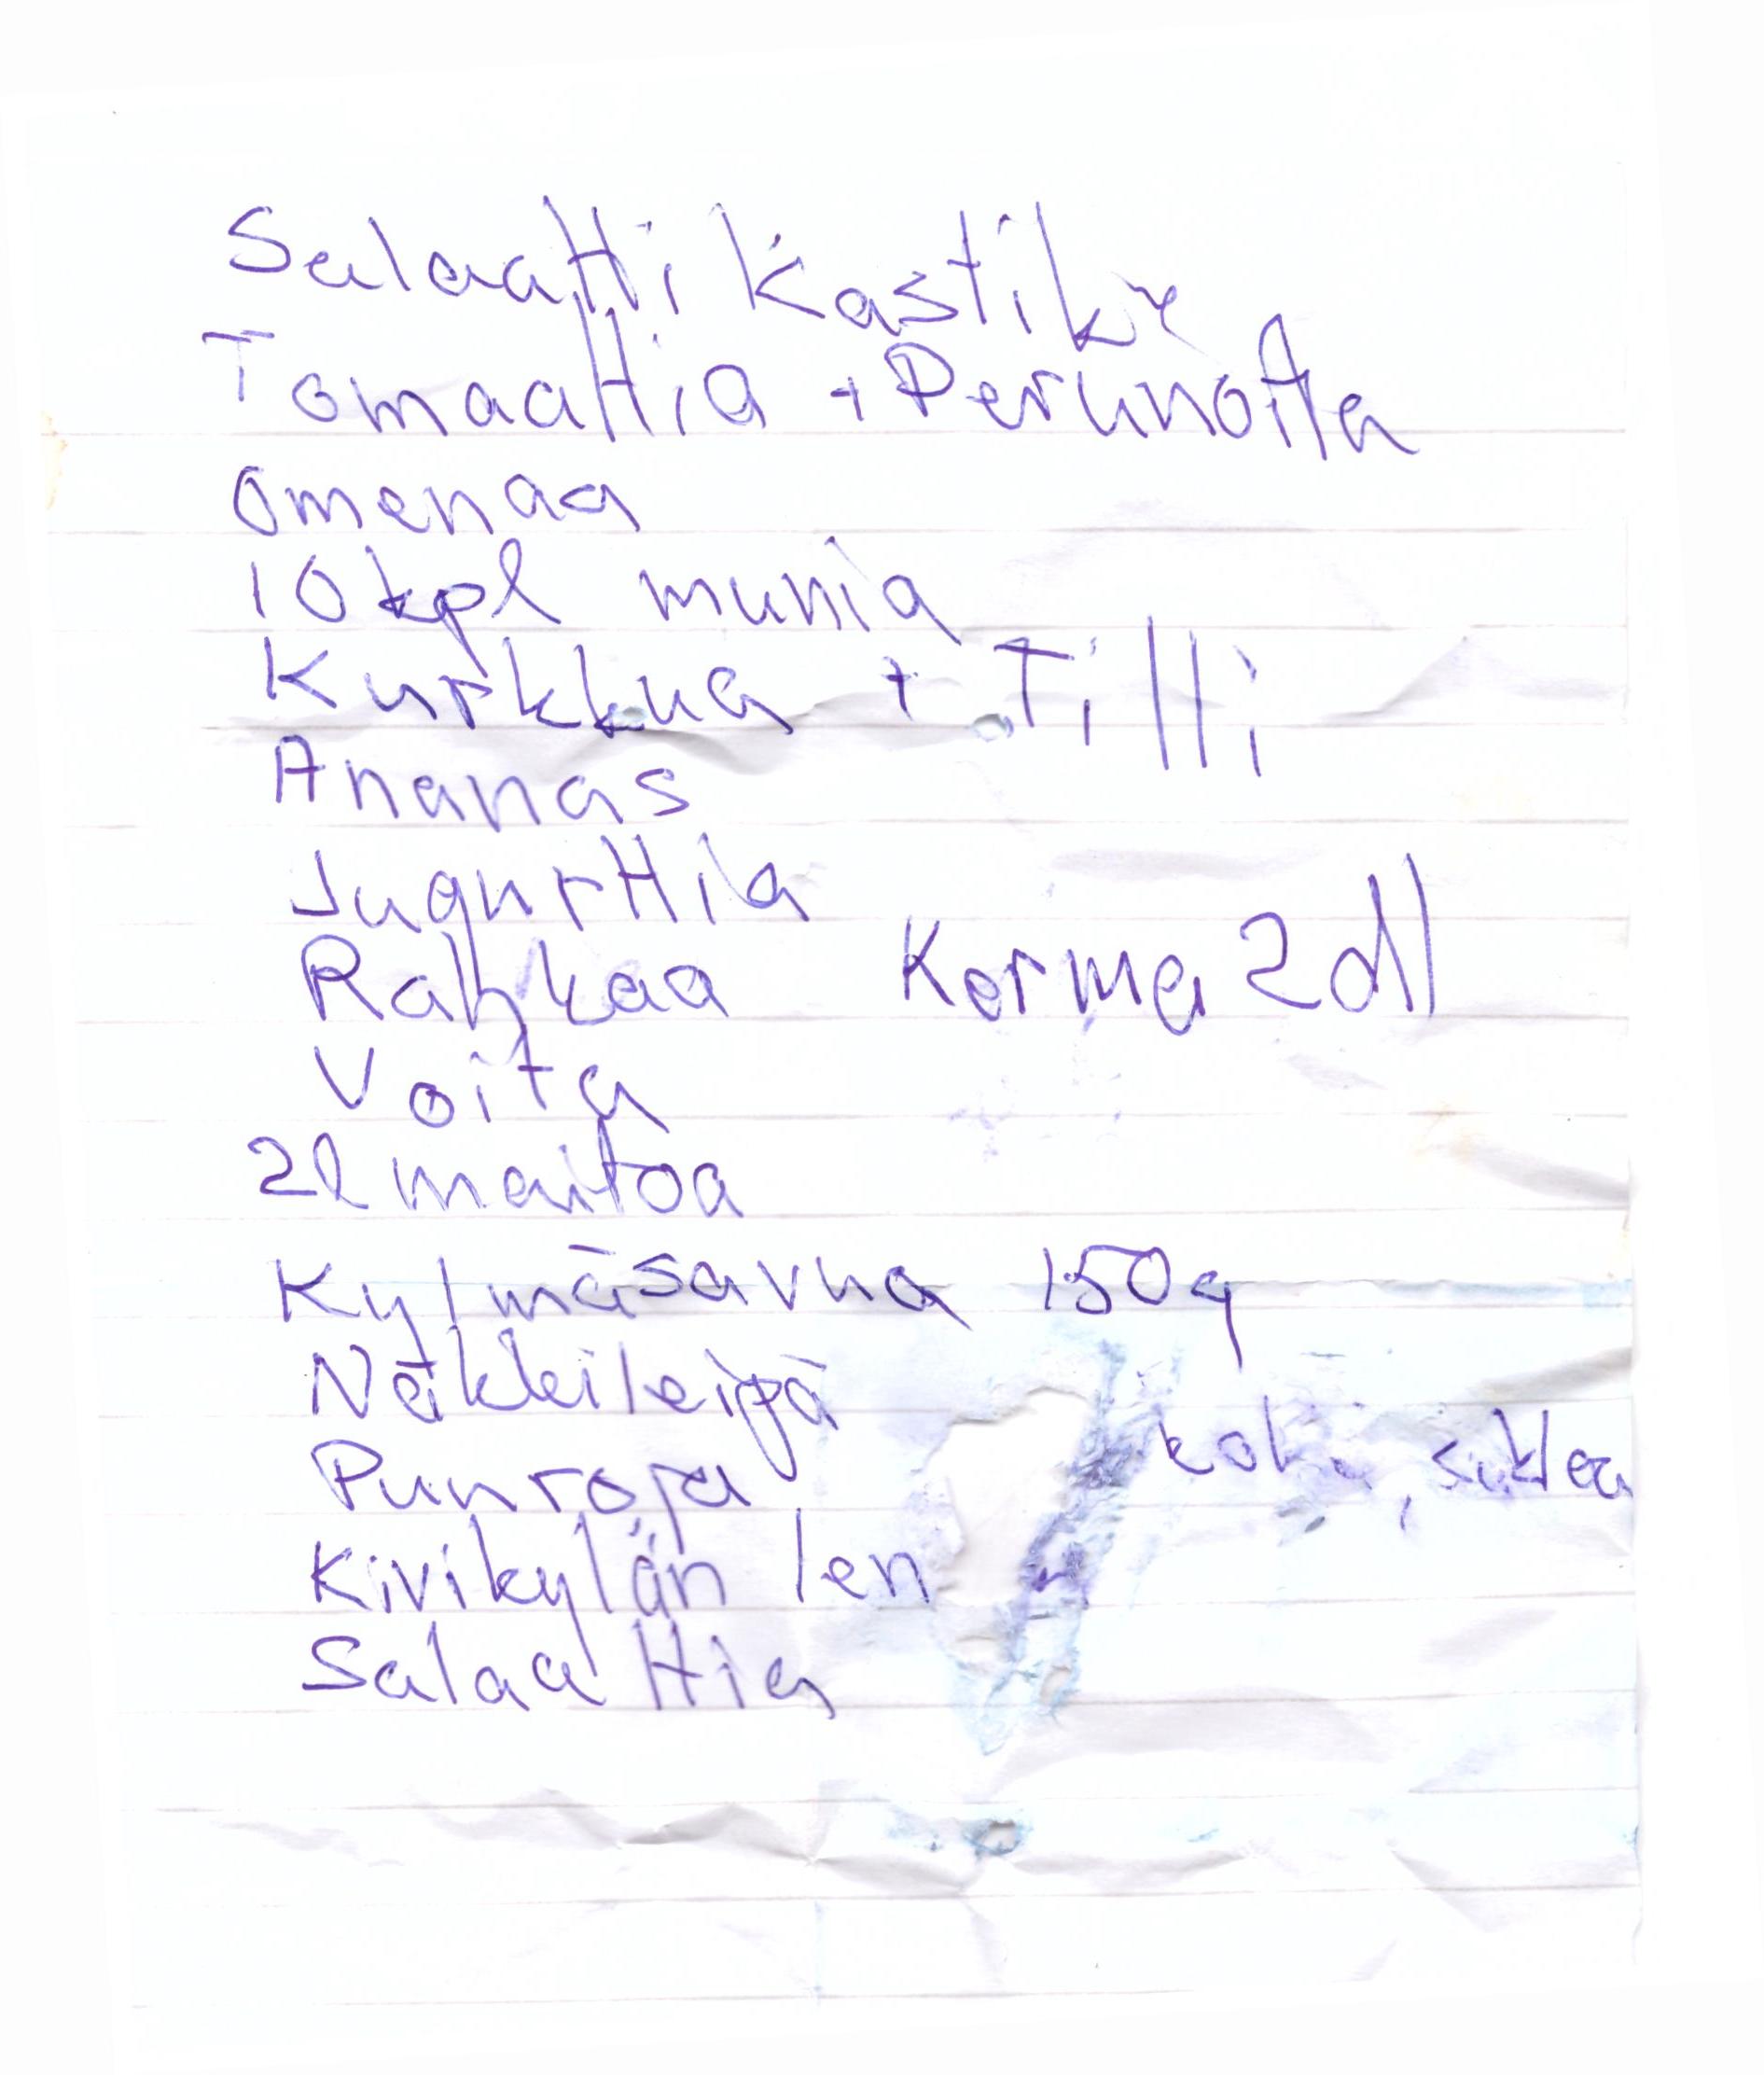 Salaatti kastike
Tomaattia + Perunoita
Omenaa
10 kpl munia
Kurkkua + Tilli
Ananas
Jugurttia
Rahkaa Kerma 2 dl
Voita
2l maitoa
Kylmäsavua 150g
Näkkileipä
Punroja
Kivikylän len
Salaattia